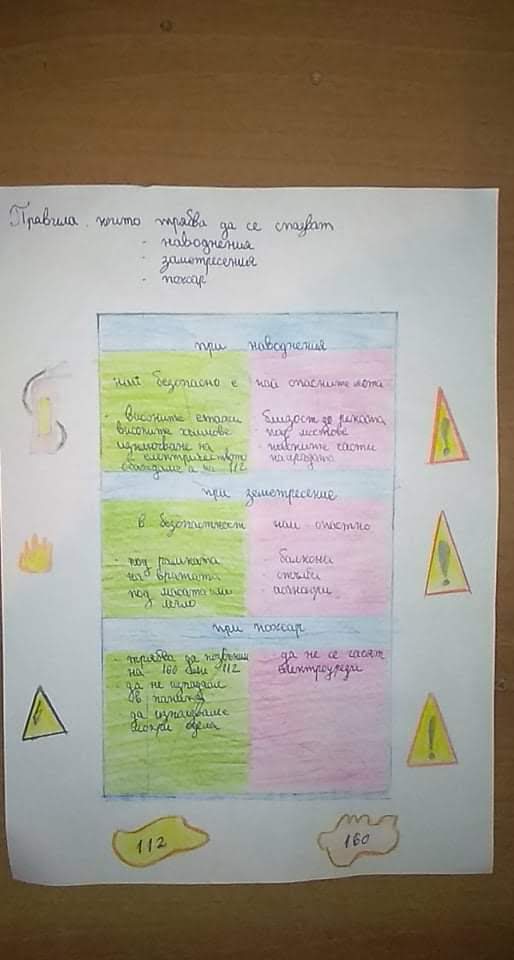 Правила, които трябва да се спазват
- наводнения
- заметресения
- пожар
при наводнения
най безопасно е
- високите етажи
високите хълмове
изключване на
електричеството
обаждаме а на 112
най опасните места
- близост до реката
под мостове
- ниските части
на града
при земетресение
в безопастност
- под рамката
на вратата
под масата или
легло
най опастно
- балкони
стълби
- асансьори
при пожар
- трябва да позвъним
на 160 или 112
- да не изпадаме
в паника
да използваме
мокри одеала
- да не се гасят
електроуреди
112
160